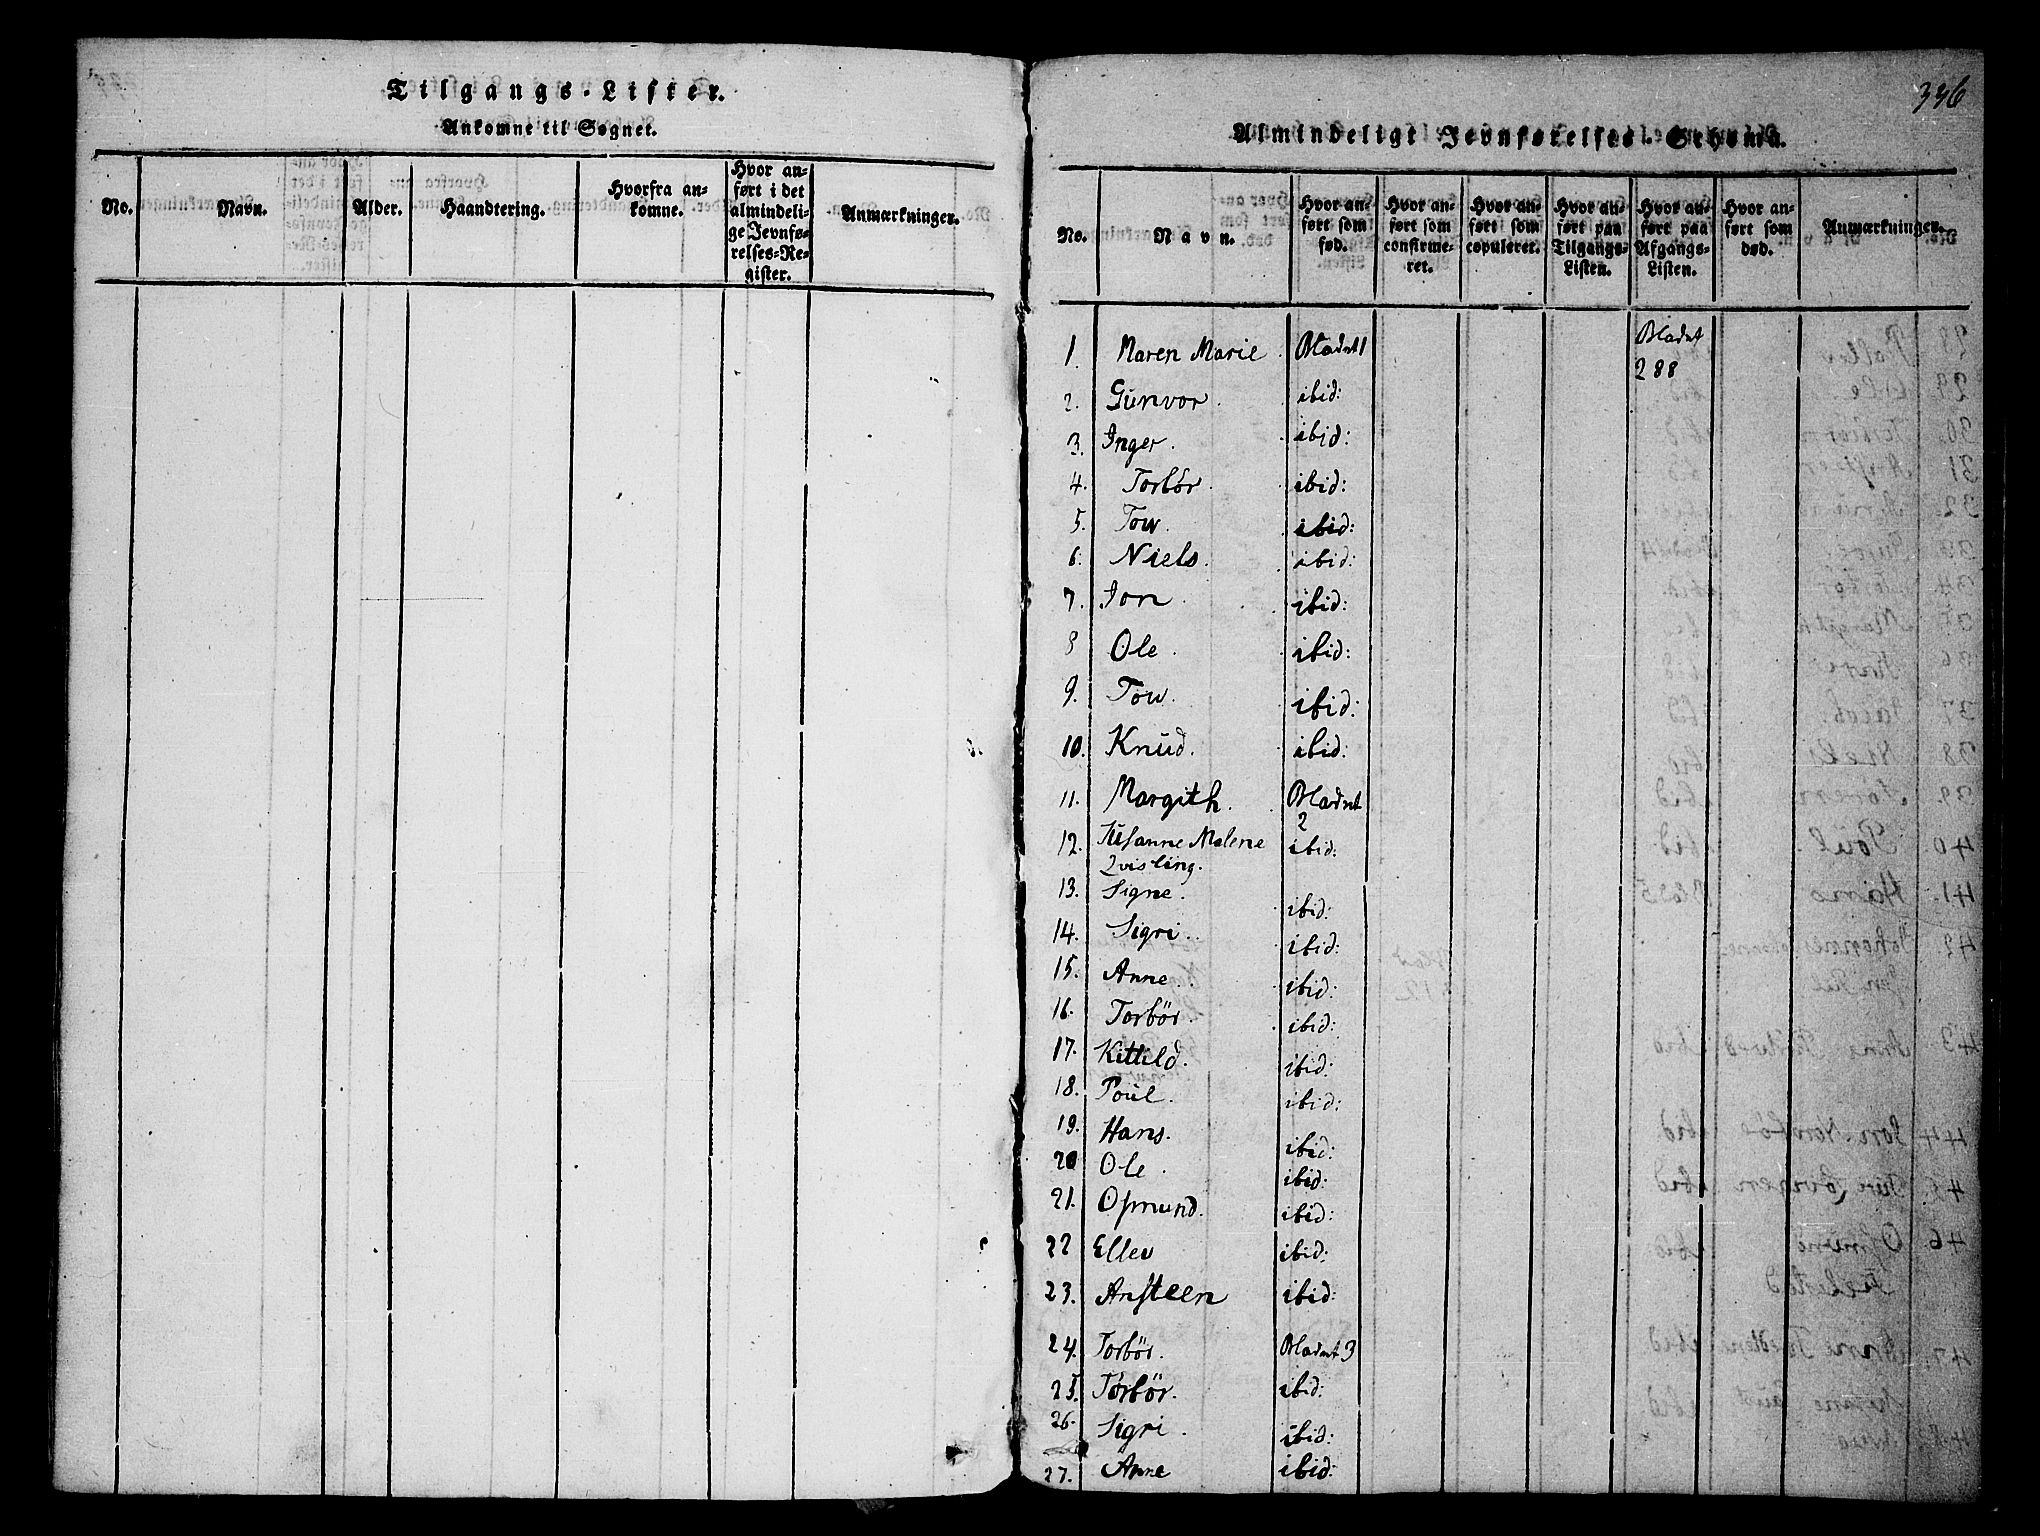 Tilgangs-Lister.
Ankomne til Sognet.
No.
Navn.
Alder.
Haandtering.
Hvorfra an-
komne.
Hvor an-
ført i det
almindeli-
ge Jevnfø-
relses-Re-
gister.
Anmærkninger.
336
Almindeligt Jevnførelses-
No.
Navn.
Hvor an-
ført som
fød.
Hvor an-
ført som
confirme-
ret.
Hvor an-
ført som
copuleret.
Hvor an-
ført paa
Tilgangs-
Listen.
Hvor an-
ført paa
Afgangs-
Listen.
Hvor an-
ført som
død.
Anmærkninger.
1. Maren Marie Bladet 1 Bladet
288
2. Gunvor. ibid:
3. Inger. ibid:
4. Torbör. ibid:
5. Tov. ibid:
6. Niels. ibid:
7. Jon ibid:
8 Ole. ibid:
9. Tov. ibid:
10. Knud. ibid:
11. Margith. Bladet
2
12. Susanne Malene ibid:
Qvisling.
13. Signe. ibid:
14. Sigri. ibid:
15. Anne. ibid:
16. Torbör. ibid:
17. Kittild. ibid:
18. Poul. ibid:
19. Hans. ibid:
20 Ole. ibid:
21. Osmund. ibid:
22 Ellev ibid:
23. Ansteen ibid:
24. Torbör. Bladet 3
25. Torbör. ibid:
26. Sigri. ibid:
27. Anne ibid: